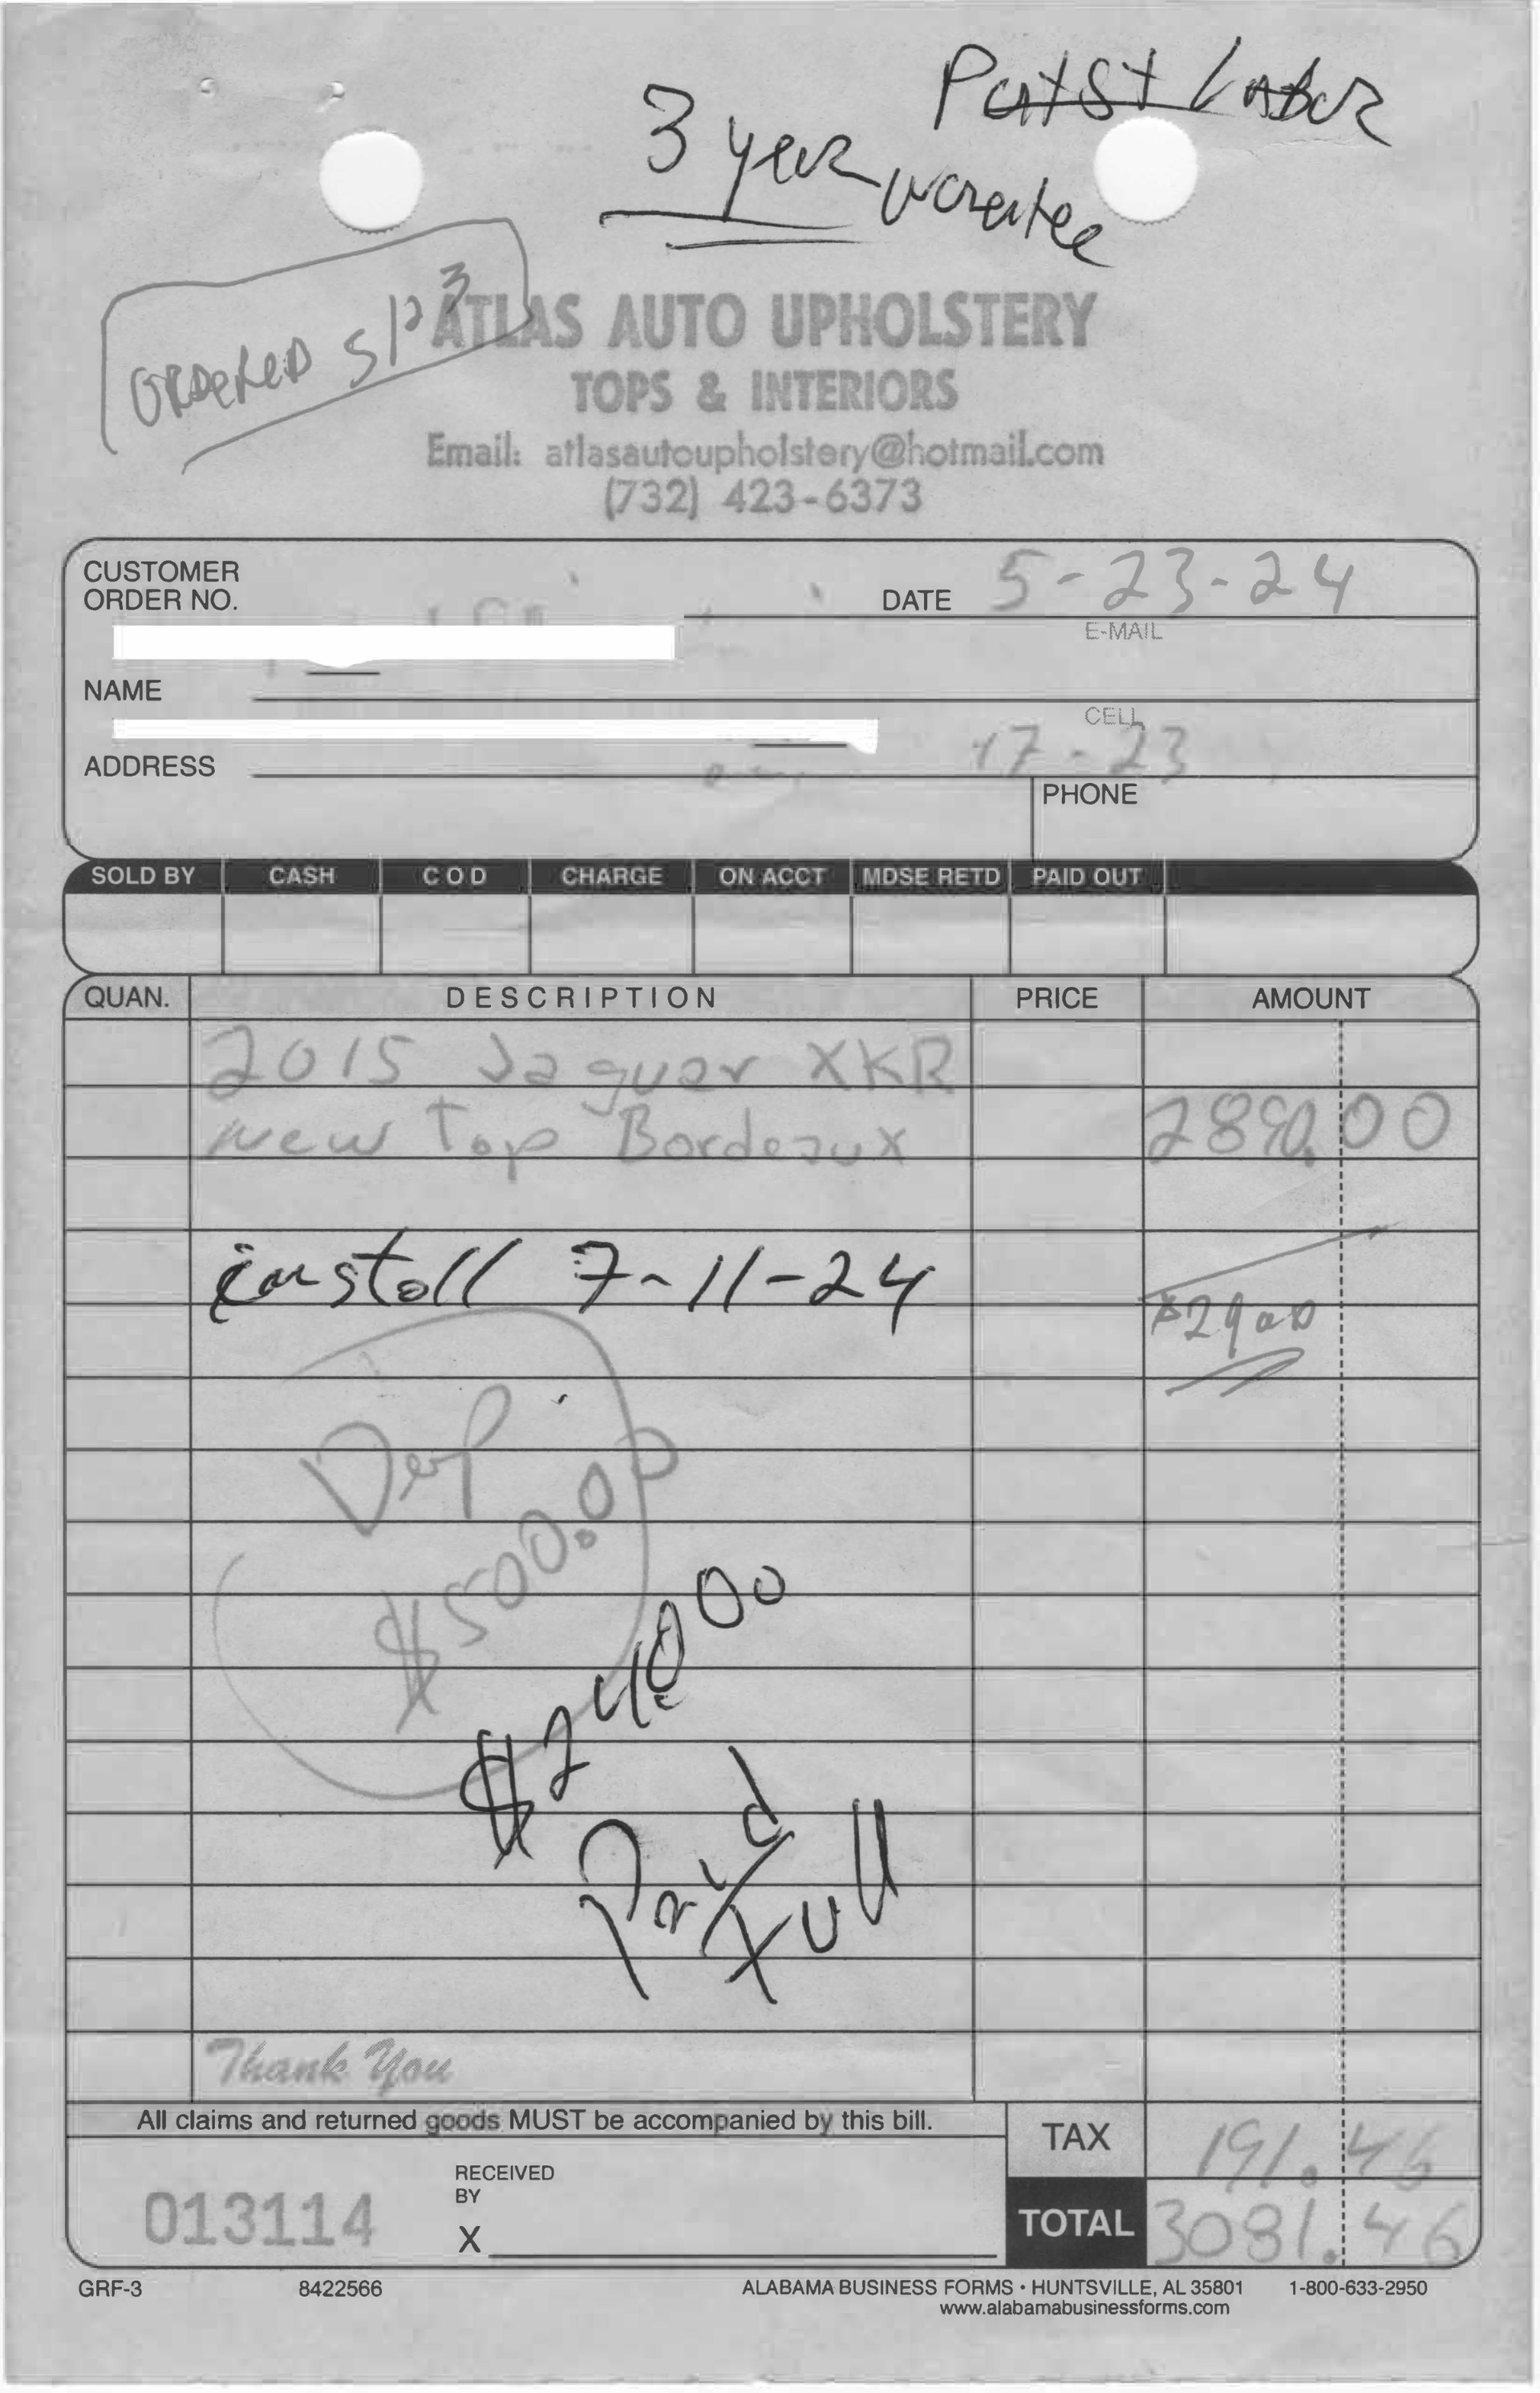 Parts + Labor
3 year
ORDERED 5/23
ATLAS AUTO UPHOLSTERY
TOPS & INTERIORS
Email: atlasautoupholstery@hotmail.com
(732) 423-6373
CUSTOMER
ORDER NO.
DATE 5-23-24
E-MAIL
NAME
CELL
17-23
ADDRESS
PHONE
SOLD BY CASH COD CHARGE ON ACCT MDSE RETD PAID OUT
QUAN. DESCRIPTION PRICE AMOUNT
2015 Jaguar XKR
New Top Bordeaux 2890.00
install 7-11-24
$2900
Dep
$500.00
$2400.00
Paid
Full
Thank You
All claims and returned goods MUST be accompanied by this bill.
TAX 191.46
013114
RECEIVED
BY
X
TOTAL 3081.46
GRF-3 8422566 ALABAMA BUSINESS FORMS • HUNTSVILLE, AL 35801 1-800-633-2950
www.alabamabusinessforms.com